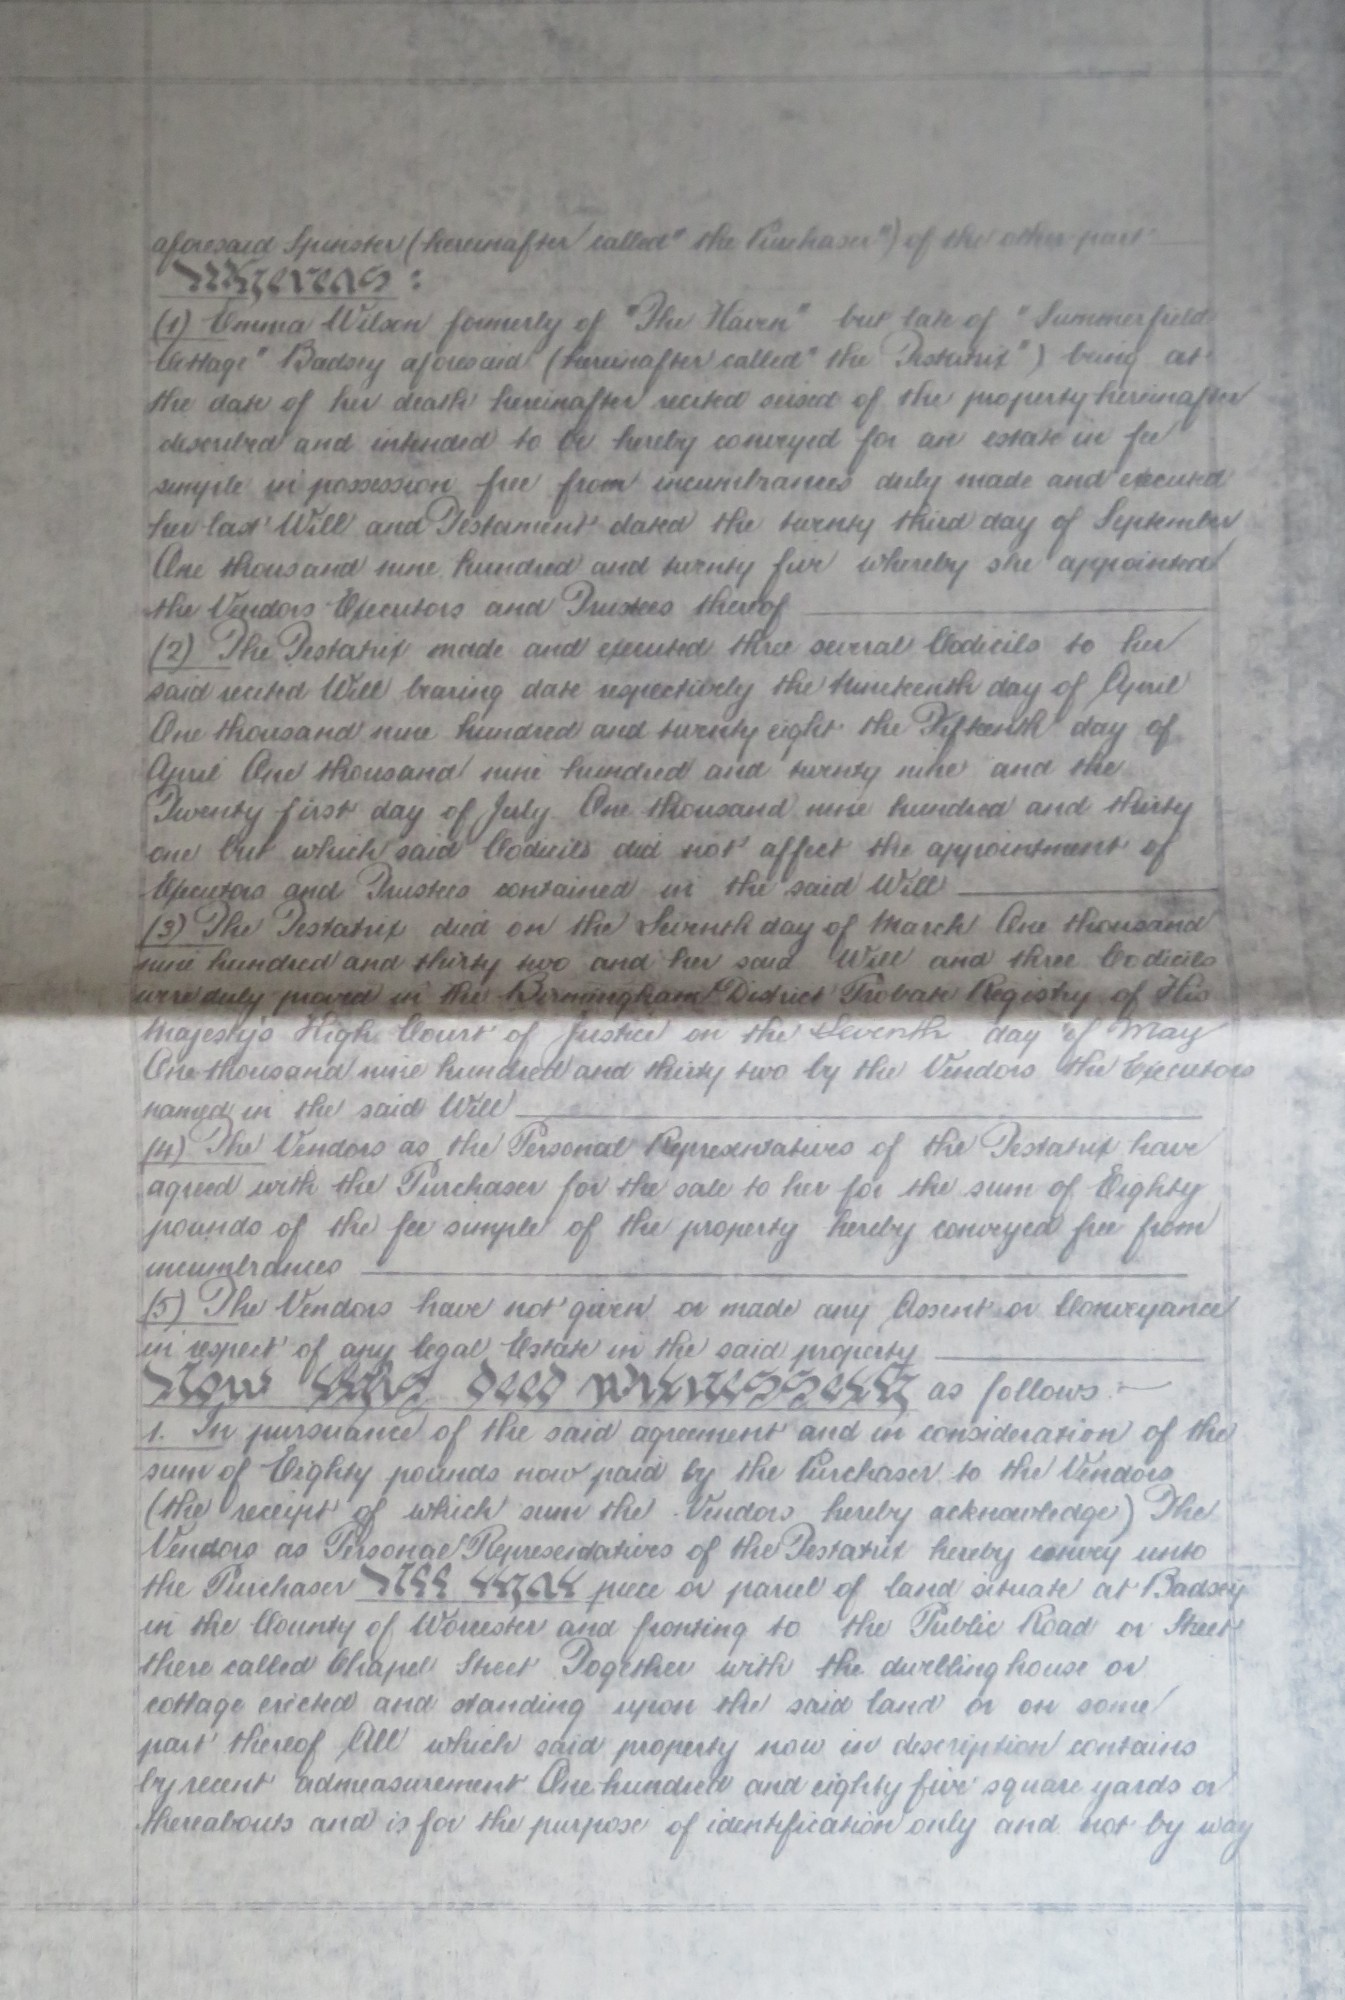 aforesaid Spinster (hereinafter called "the Purchaser") of the other part
Whereas :
(1) Emma Wilson formerly of "The Haven" but late of "Summerfield
Cottage" Badsey aforesaid (hereinafter called "the Testatrix") being at
the date of her death hereinafter recited seised of the property hereinafter
described and intended to be hereby conveyed for an estate in fee
simple in possession free from incumbrances duly made and executed
her last Will and Testament dated the twenty third day of September
One thousand nine hundred and twenty five whereby she appointed
the Vendors Executors and Trustees thereof
(2) The Testatrix made and executed three several Codicils to her
said recited Will bearing date respectively the Nineteenth day of April
One thousand nine hundred and twenty eight the Fifteenth day of
April One thousand nine hundred and twenty nine and the
Twenty first day of July One thousand nine hundred and thirty
one but which said Codicils did not affect the appointment of
Executors and Trustees contained in the said Will
(3) The Testatrix died on the Seventh day of March One thousand
nine hundred and thirty two and her said Will and three Codicils
were duly proved in the Birmingham District Probate Registry of His
Majesty's High Court of Justice on the Seventh day of May
One thousand nine hundred and thirty two by the Vendors the Executors
named in the said Will
(4) The Vendors as the Personal Representatives of the Testatrix have
agreed with the Purchaser for the sale to her for the sum of Eighty
pounds of the fee simple of the property hereby conveyed free from
incumbrances
(5) The Vendors have not given or made any Assent or Conveyance
in respect of any legal Estate in the said property
Now this Deed witnesseth as follows :-
1. In pursuance of the said agreement and in consideration of the
sum of Eighty pounds now paid by the Purchaser to the Vendors
(the receipt of which sum the Vendors hereby acknowledge) The
Vendors as Personal Representatives of the Testatrix hereby convey unto
the Purchaser All that piece or parcel of land situate at Badsey
in the County of Worcester and fronting to the Public Road or Street
there called Chapel Street Together with the dwellinghouse or
cottage erected and standing upon the said land or on some
part thereof All which said property now in description contains
by recent admeasurement One hundred and eighty five square yards or
thereabouts and is for the purpose of identification only and not by way